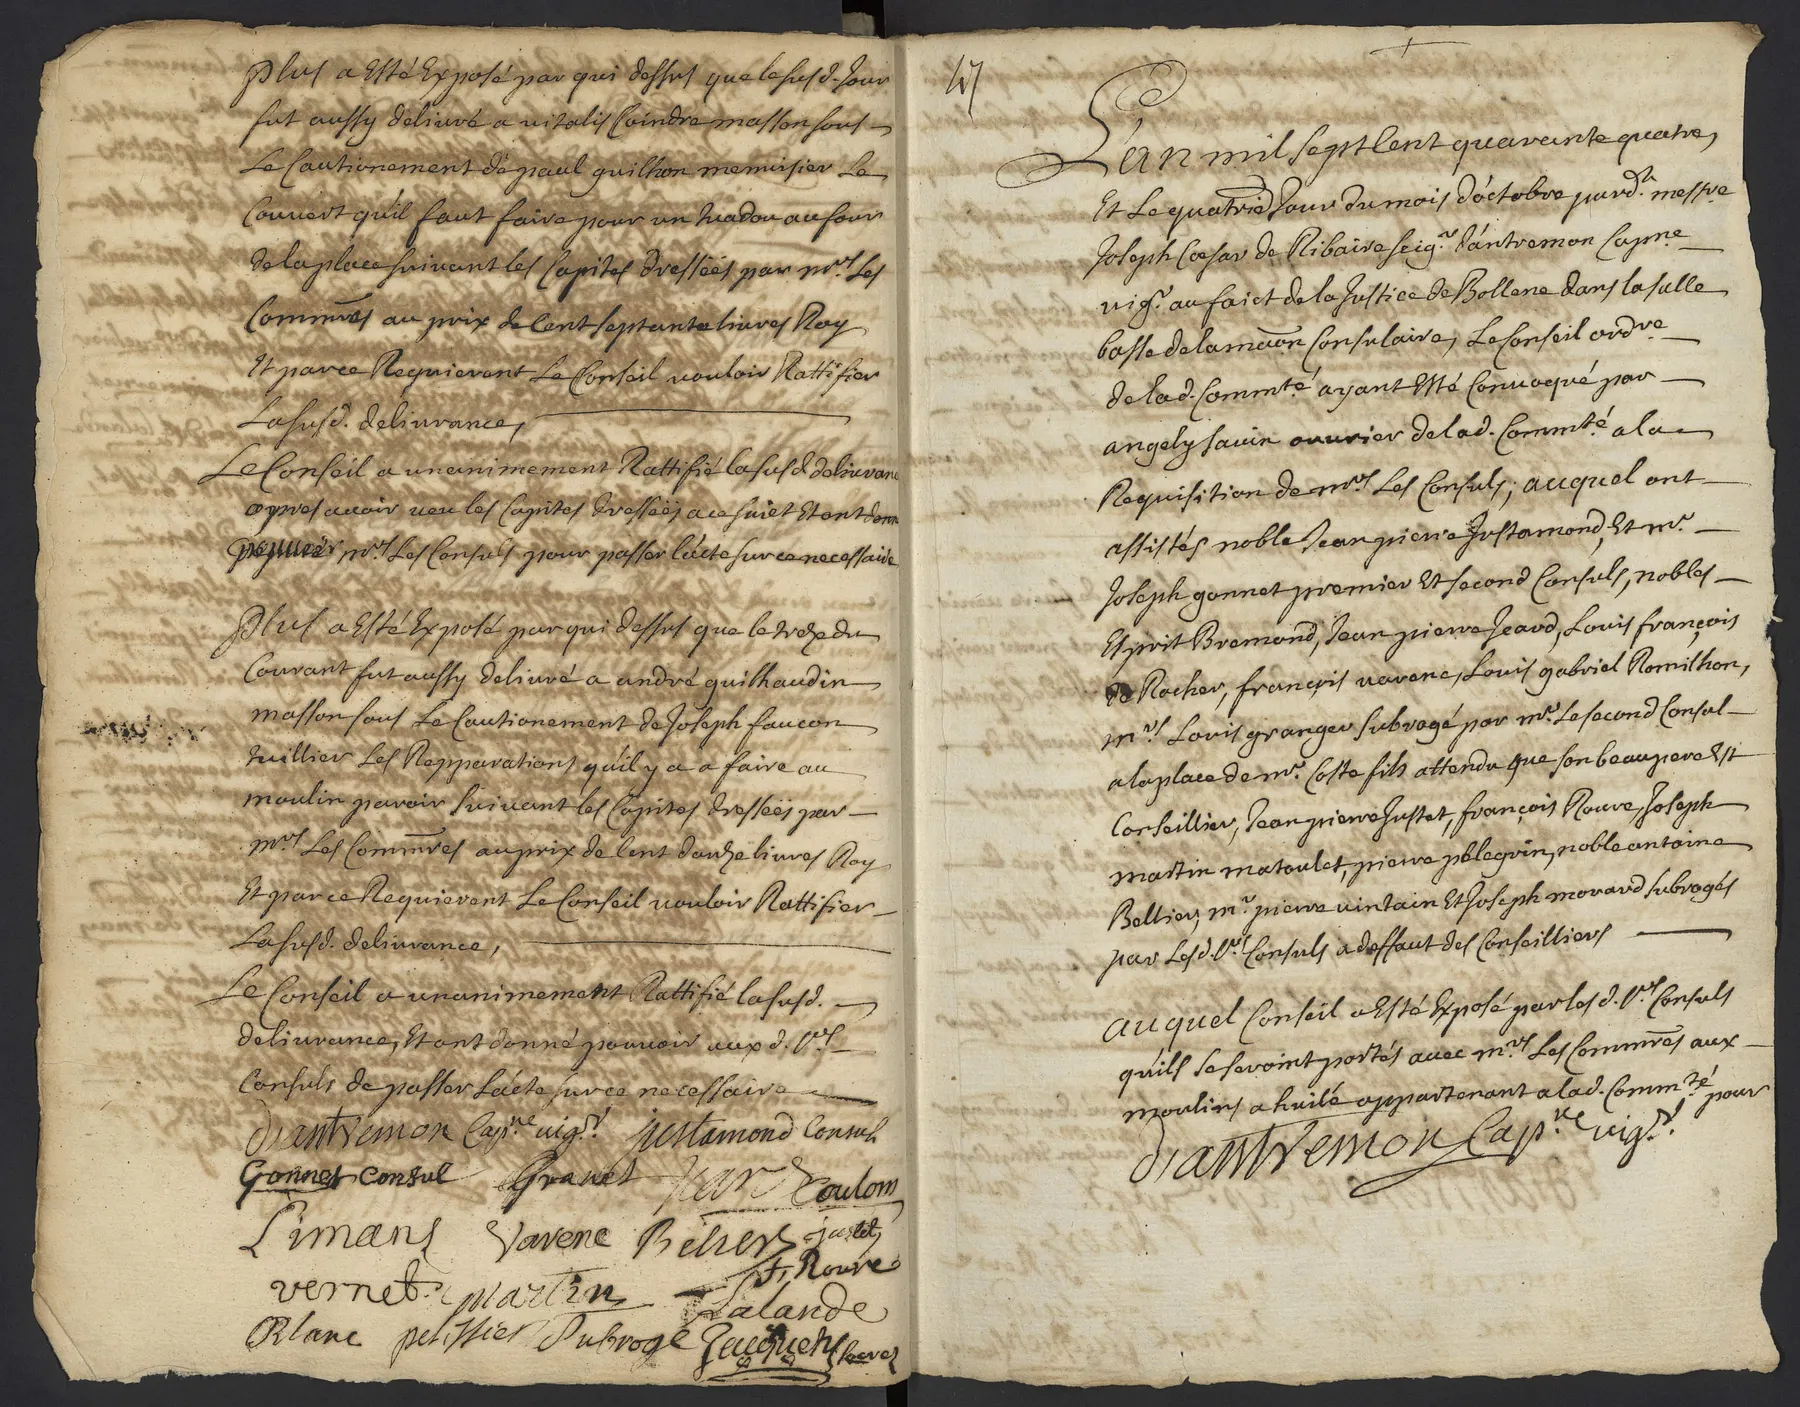 plus a Esté Exposé par qui dessus que le susd. Jour
fut aussy deliuré a vitalis Coindre masson sous
Le Cautionement de paul guilhon menusier Le
Couvert qu'il faut faire pour un four
de la place suivant les Capites dressées par mrs. Les
Commres au prix de Cent septante liures Roy
Et parce Requierent Le Conseil vouloir Rattifier
La susd. deliurance,
Le Conseil a unanimement Rattifié la susd. deliurance
apres avoir veu les Capites dressées a ce suiet Et ont donné
pouuoir mrs. Les Consuls pour passer l'acte sur ce necessaire
plus a Esté Exposé par qui dessus que le treze du
Courant fut aussy deliuré a andré guilhaudin
masson sous Le Cautionement de Joseph faucon
tuillier Les Repparations qu'il y a a faire au
moulin paroir suivant les Capites dressées par
mrs. Les Commres au prix de Cent douze liures Roy
Et par ce Requierent Le Conseil vouloir Rattifier
La susd. deliurance,
Le Conseil a unanimement Rattifié la susd.
deliurance, Et ont donné pouvoir aux d. srs.
Consuls de passer l'acte sur ce necessaire
d'antremon Capne. vigr. justamond Consul
Gonnet consul Granet Jeard Coulom
Limans Varene Bellier justet
F. Rouvre
vernet martin Lalande
Blanc pelissier Subrogé Jacques
47
L'an mil sept Cent quarante quatre,
Et Le quatrie. Jour du mois d'octobre pard. messre
Joseph Cæsar de Ribaire seigr. d'antremon Capne
vigr. au faict de la Justice de Bollene dans la salle
basse de la maon Consulaire, Le Conseil ordre
de lad. Commté. ayant Esté Convoqué par
angely sauin ouurier de lad. Commté. a la
Requisition de mrs. Les Consuls; auquel ont
assistés noble Jean pierre Justamond, Et mr.
Joseph gonnet premier Et second Consuls, nobles
Esprit Bremond, Jean pierre Jeard, Louis françois
de Rocher, françois varene, Louis gabriel Romilhon,
mrs. Louis granger subrogé par mr. Le second Consul
a la place de mr. Coste fils attendu que son beaupere Est
Conseillier, Jean pierre Justet, françois Roure, Joseph
martin matoulet, pierre pelegrin, noble antoine
Bellier, mr. pierre vintain Et Joseph morard subrogés
par Lesd. srs. Consuls a deffaut des Conseilliers
auquel Conseil a Esté Exposé par lesd. srs. Consuls
qu'ils se seroint portés avec mrs. Les Commres aux
moulins a huilé appartenant a lad. Commté. pour
d'antremon Capne. vigr.